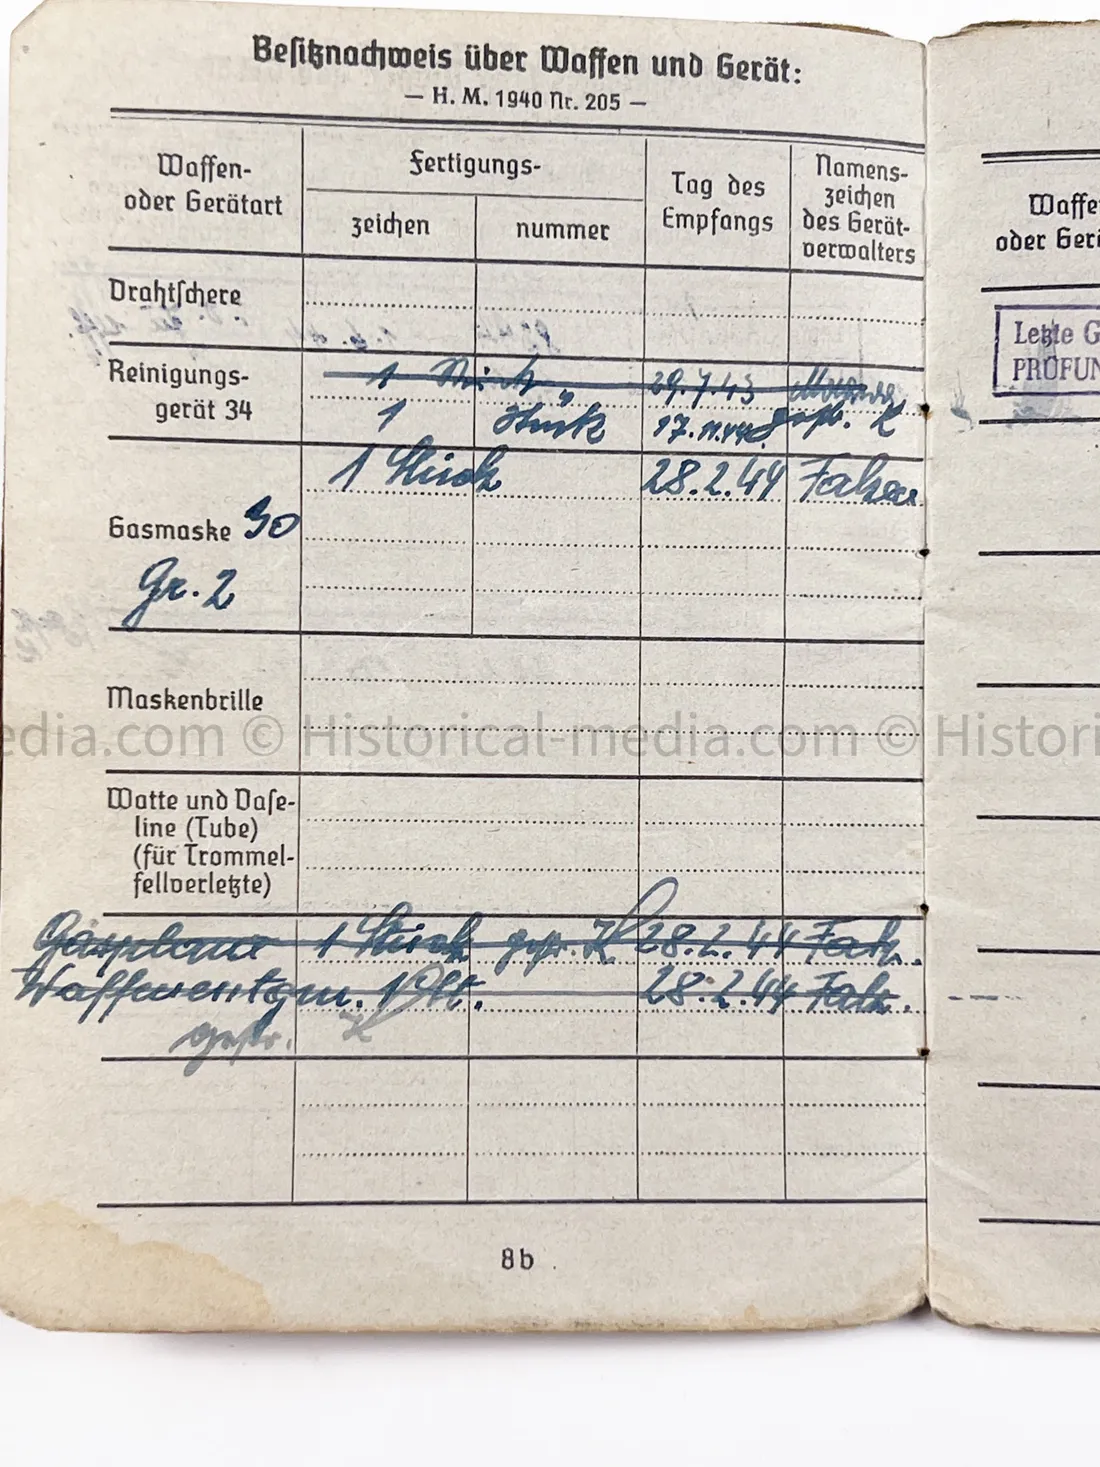 Besitznachweis über Waffen und Gerät:
— H. M. 1940 Nr. 205 —
Waffen-
oder Gerätart
Fertigungs-
zeichen
nummer
Tag des
Empfangs
Namens-
zeichen
des Gerät-
verwalters
Drahtschere
Reinigungs-
gerät 34
1 Stück 29.7.43
1 Stück 17.11.44 gepr. K
1 Stück 28.2.44
Gasmaske 30
Gr. 2
Maskenbrille
Watte und Vase-
line (Tube)
(für Trommel-
fellverletzte)
Gasplane 1 Stück gepr. K 28.2.44 Falk.
Waffenentgm. 28.2.44 Falk.
gepr. K
8b
Waffe
oder Gerä
Letzte G
PRÜFUN
edia.com © Historical-media.com © Histori